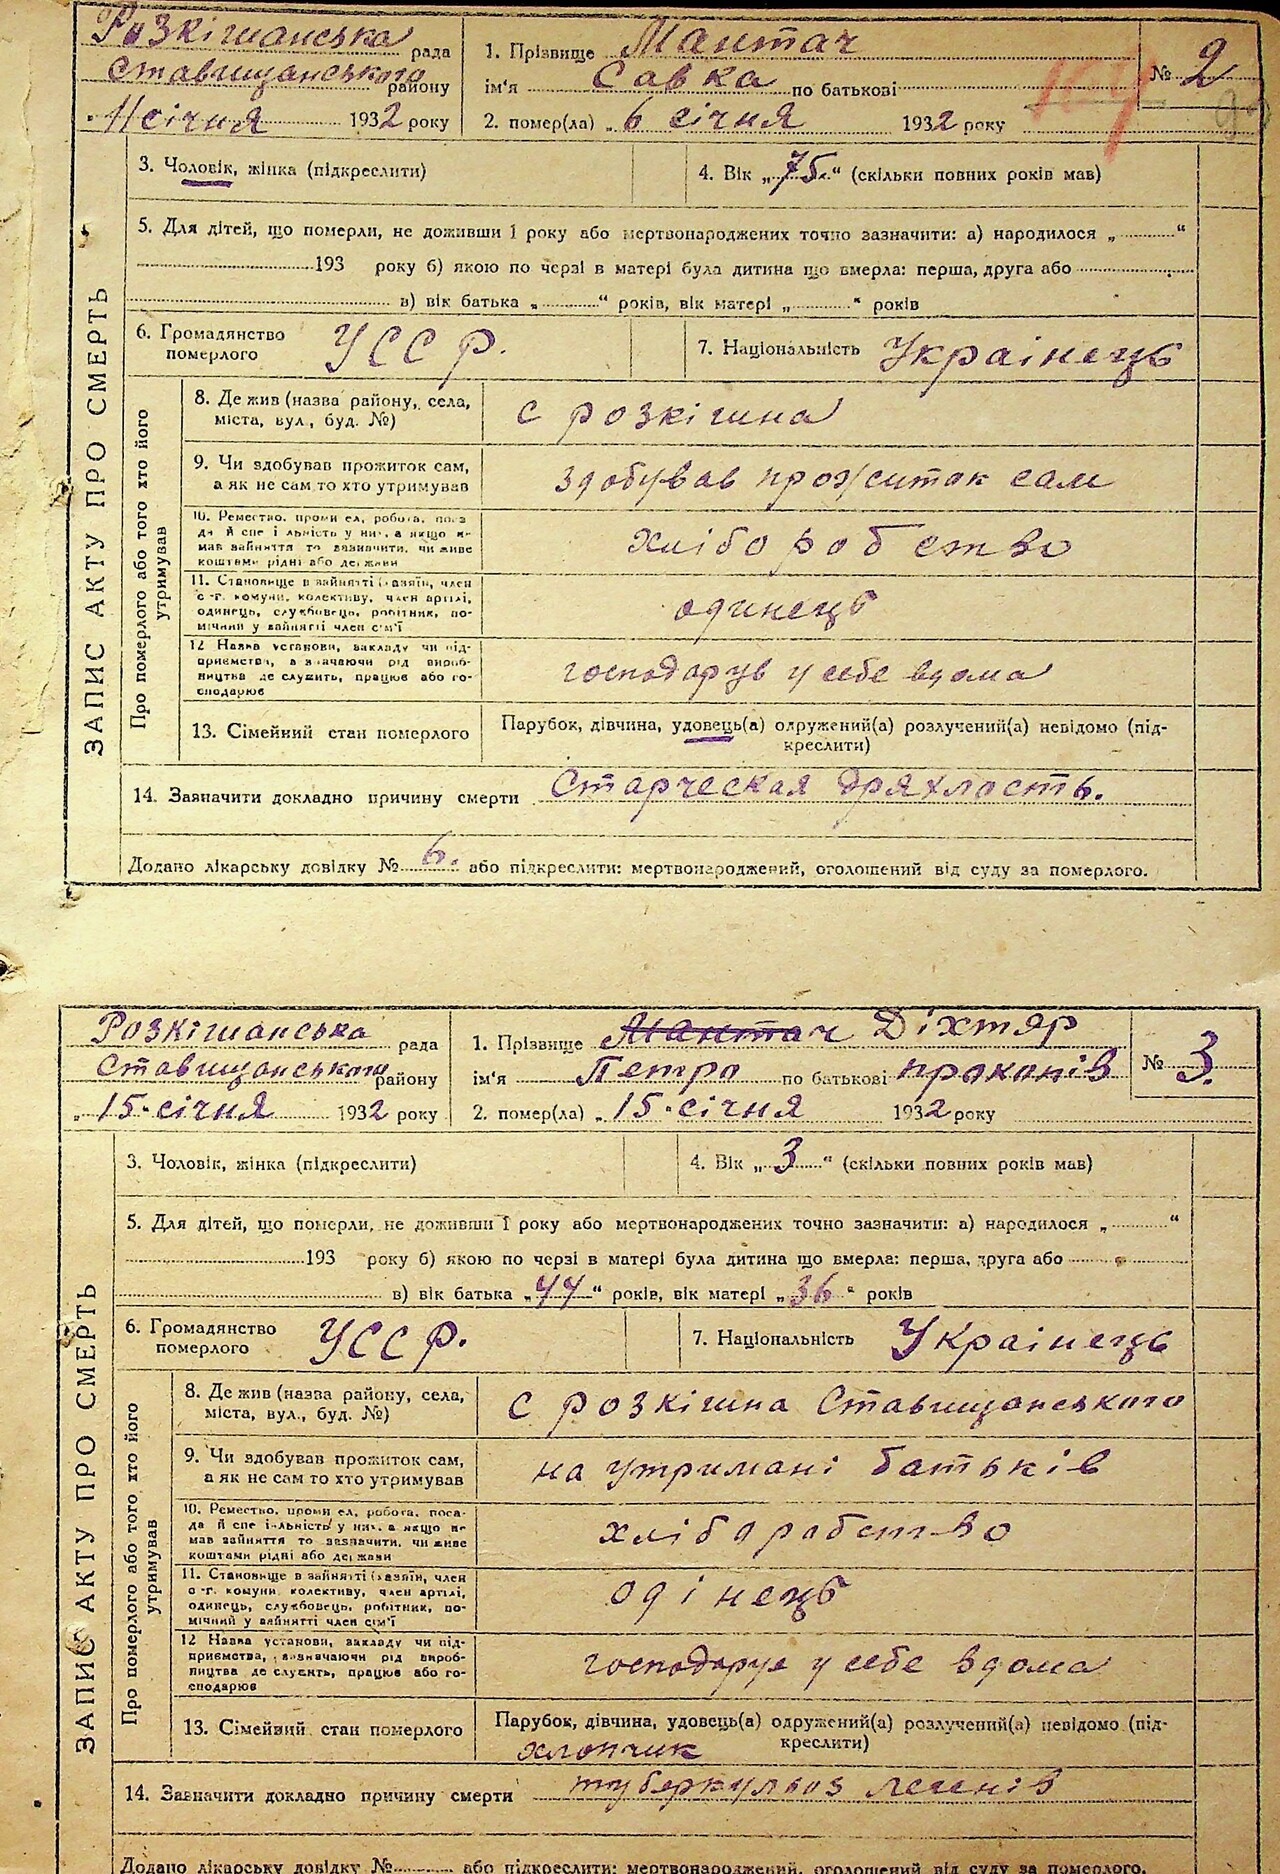 Розкішанська рада
Ставищанського району
„11 січня 1932 року
1. Прізвище Мантач
ім'я Савка по батькові
2. помер(ла) „6 січня 1932 року
№ 2
ЗАПИС АКТУ ПРО СМЕРТЬ
3. Чоловік, жінка (підкреслити)
4. Вік „75“ (скільки повних років мав)
5. Для дітей, що померли, не доживши 1 року або мертвонароджених точно зазначити: а) народилося „ “
193 року б) якою по черзі в матері була дитина що вмерла: перша, друга або
в) вік батька „ “ років, вік матері „ “ років
6. Громадянство
померлого
УССР.
7. Національність Украінець
Про померлого або того хто його
утримував
8. Де жив (назва району, села,
міста, вул., буд. №)
с розкішна
9. Чи здобував прожиток сам,
а як не сам то хто утримував
здобував прожиток сам
10. Ремество, проми ел, робота, поса
да й спе і льність у них, а якщо не
мав зайняття то зазначити, чи живе
коштами рідні або держави
хлібо робство
11. Становище в зайнятті (хазяїн, член
с.-г. комуни, колективу, член артілі,
одинець, службовець, робітник, по-
мічний у зайнятті член сім'ї
одинець
12 Назва установи, закладу чи під-
приємства, а значаючи рід вироб-
ництва де служить, працює або го-
сподарює
господарув у себе вдома
13. Сімейний стан померлого
Парубок, дівчина, удовець(а) одружений(а) розлучений(а) невідомо (під-
креслити)
14. Зазначити докладно причину смерти Старческая дряхлость.
Додано лікарську довідку № 6. або підкреслити: мертвонароджений, оголошений від суду за померлого.
Розкішанська рада
Ставищанського району
„15. січня 1932 року
1. Прізвище Мантач Діхтяр
ім'я Петро по батькові проконів
2. помер(ла) „15. січня 1932 року
№ 3.
ЗАПИС АКТУ ПРО СМЕРТЬ
3. Чоловік, жінка (підкреслити)
4. Вік „3“ (скільки повних років мав)
5. Для дітей, що померли, не доживши 1 року або мертвонароджених точно зазначити: а) народилося „ “
193 року б) якою по черзі в матері була дитина що вмерла: перша, друга або
в) вік батька „44“ років, вік матері „36“ років
6. Громадянство
померлого
УССР.
7. Національність Украінець
Про померлого або того хто його
утримував
8. Де жив (назва району, села,
міста, вул., буд. №)
с розкішна Ставищанського
9. Чи здобував прожиток сам,
а як не сам то хто утримував
на утримані батьків
10. Ремество, проми ел, робота, поса-
да й спе іальність у них, а якщо не
мав зайняття то зазначити, чи живе
коштами рідні або держави
хлібо робство
11. Становище в зайнятті (хазяїн, член
с.-г. комуни, колективу, член артілі,
одинець, службовець, робітник, по-
мічний у зайнятті член сім'ї
одінець
12 Назва установи, закладу чи під-
приємства, зазначаючи рід вироб-
ництва де служить, працює або го-
сподарює
господарує у себе вдома
13. Сімейний стан померлого
Парубок, дівчина, удовець(а) одружений(а) розлучений(а) невідомо (під-
креслити)
хлопчик
14. Зазначити докладно причину смерти туберкульоз легенів
Додано лікарську довідку № або підкреслити: мертвонароджений, оголошений від суду за померлого.